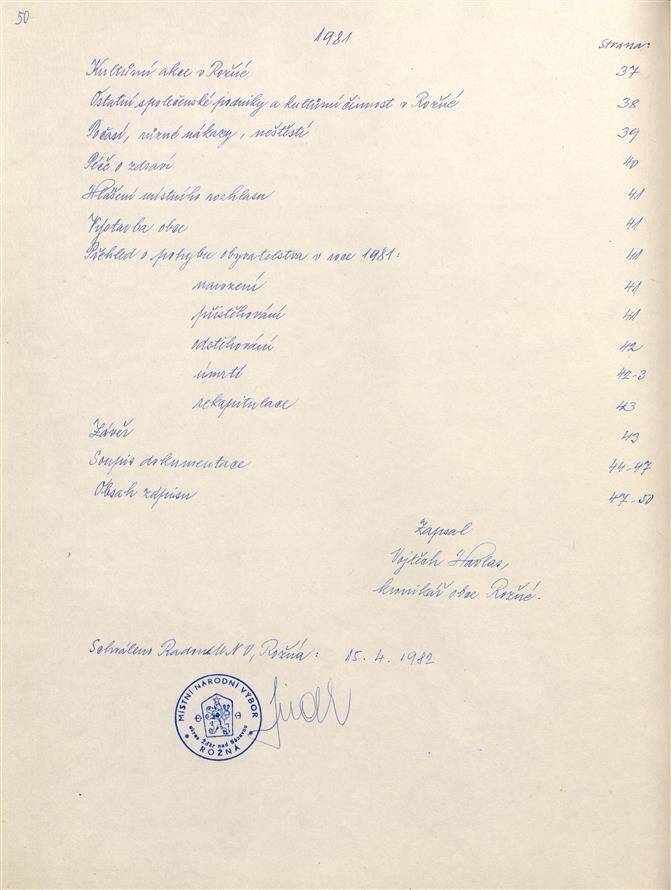 50
1981
Strana:
Kulturní akce v Rožné 37
Ostatní společenské podniky a kulturní činnost v Rožné 38
Počasí, různé nákazy, neštěstí 39
Péče o zdraví 40
Hlášení místního rozhlasu 41
Výstavba obce 41
Přehled o pohybu obyvatelstva v roce 1981: 41
narození 41
přistěhování 41
odstěhování 42
úmrtí 42-3
rekapitulace 43
Závěr 43
Soupis dokumentace 44-47
Obsah zápisu 47-50
Zapsal
Vojtěch Havlas,
kronikář obce Rožné.
Schváleno Radou MNV, Rožná: 15. 4. 1982
MÍSTNÍ NÁRODNÍ VÝBOR
okres Žďár nad Sázavou
ROŽNÁ